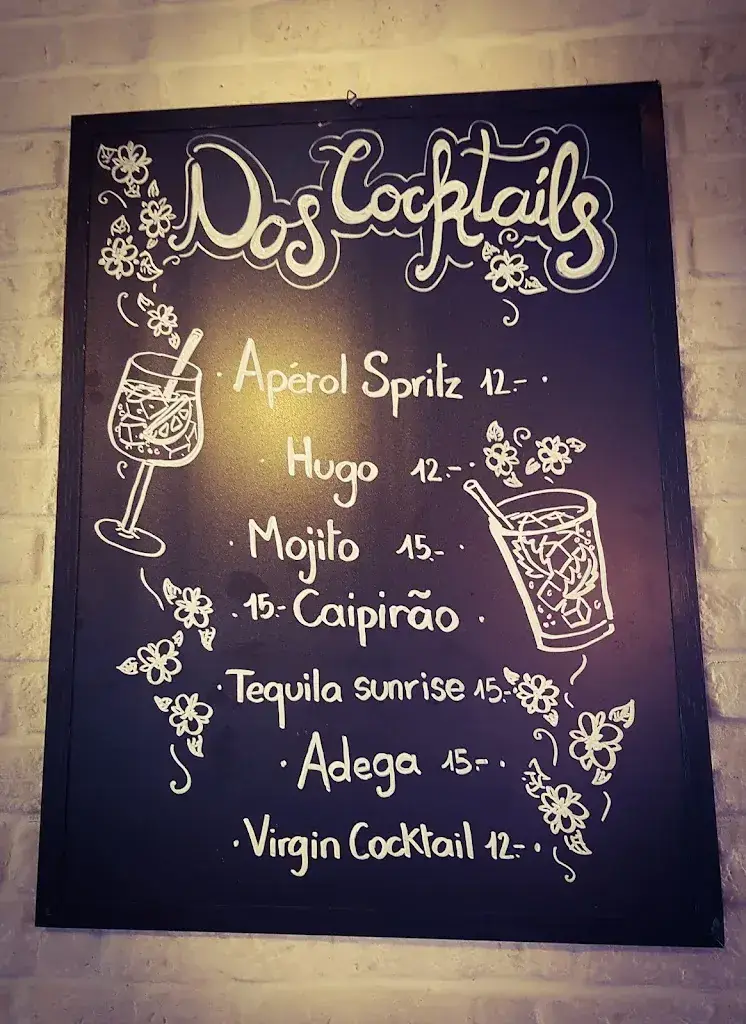 Nos Cocktails
· Apérol Spritz 12.- ·
· Hugo 12.- ·
· Mojito 15.- ·
· 15.- Caipirão ·
· Tequila sunrise 15.-
· Adega 15.- ·
· Virgin Cocktail 12.- ·